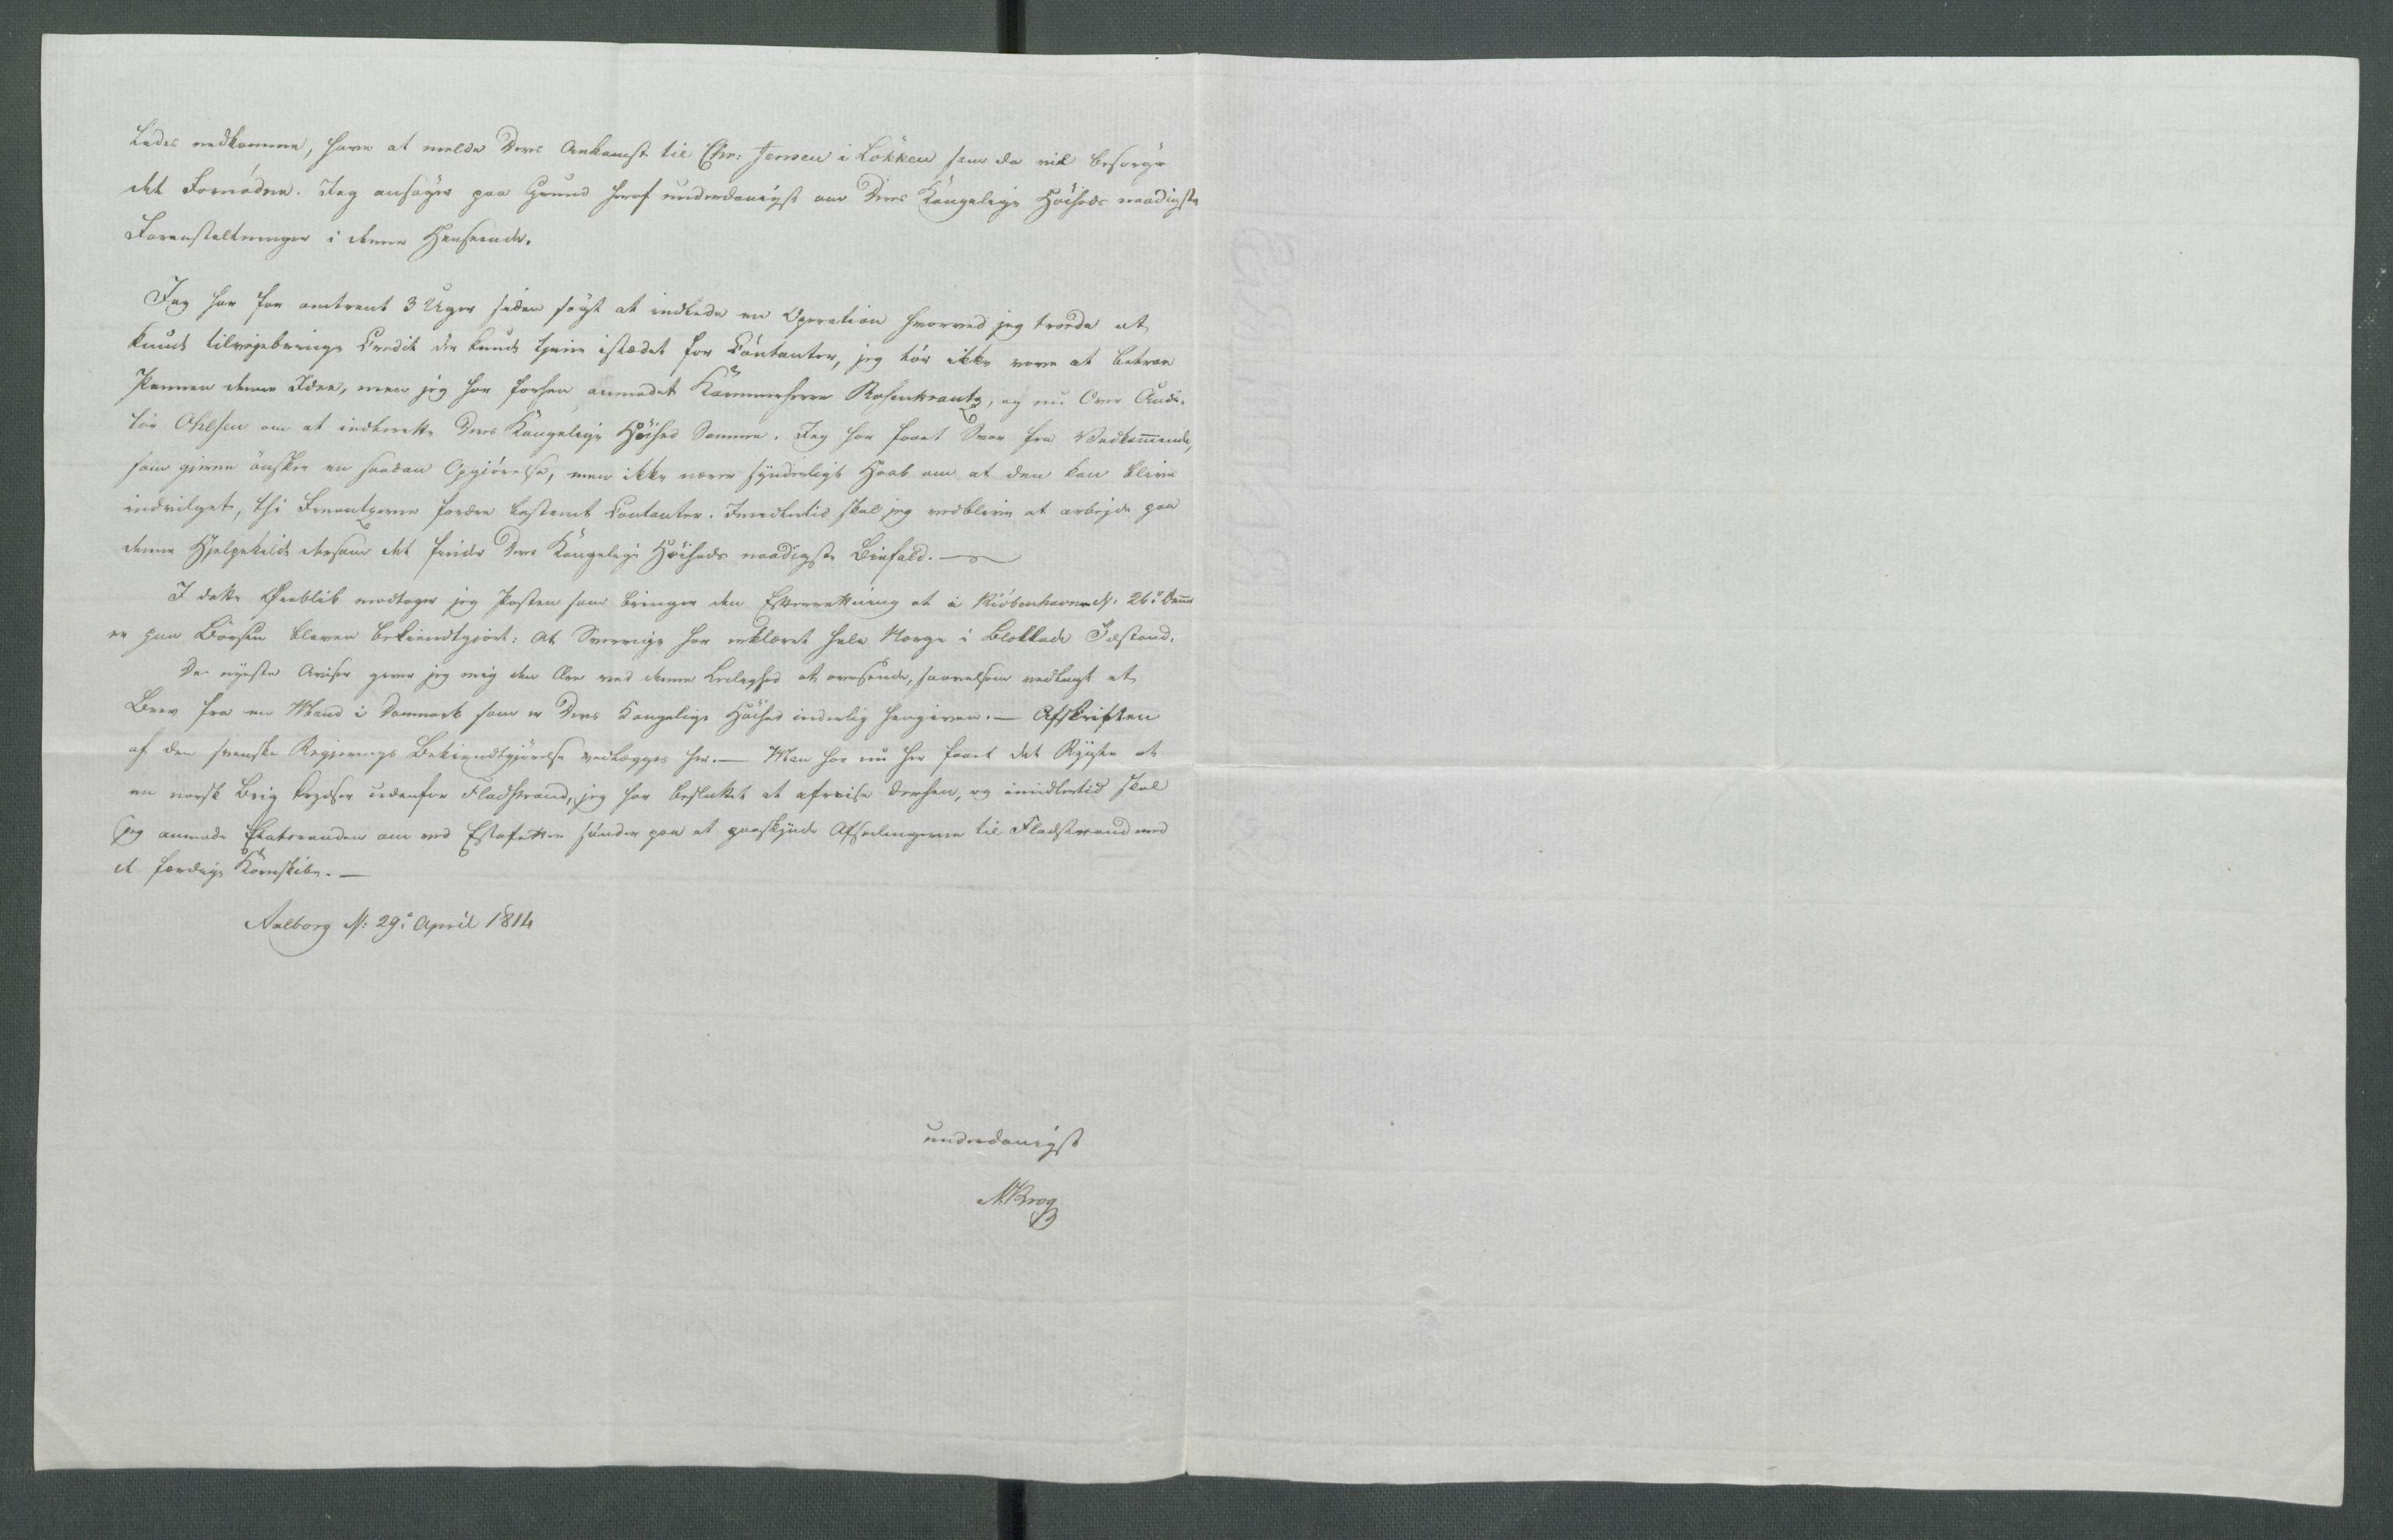 ledes nedkomme, have at melde Deres Ankomst til Chr: Jensen i Lökken som da vil besörge
det Fornödne. Jeg ansöger paa Grund heraf underdanigst om Deres Kongelige Höiheds naadigste
Foranstaltninger i denne Henseende.
Jeg har for omtrent 3 Uger siden sögt at indlede en Operation hvorved jeg troede at
kunde tilvejebringe Credit der kunde tjene istædet for Contanter, jeg tör ikke vove at betroe
Pennen denne Idee, men jeg har forhen anmodet Kammerherre Rosenkrantz, og nu Over Audi-
tör Ohlsen om at indberette Deres Kongelige Höihed Samme. Jeg har faaet Svar fra Vedkommende,
som gjerne önsker en saadan Opgjörelse, men ikke nærer synderligt Haab om at den kan blive
indvilget, thi fordre bestemt Contanter. Imidlertid skal jeg vedblive at arbejde paa
denne Hjelpekilde dersom det finder Deres Kongelige Höiheds naadigste Biefald. —
I dette Øieblik modtager jeg Posten som bringer den Efterretning at i Kiöbenhavn d: 26: Dennes
er paa Börsen bleven bekiendtgiort: at Sverrige har erklæret hele Norge i Blokkade Tilstand.
De nyeste Aviser giver jeg mig den Ære ved denne Leilighed at oversende, saavelsom vedlagt et
Brev fra en Mand i Danmark som er Deres Kongelige Höihed inderlig hengiven. — Afskriften
af den svenske Regjerings Bekiendtgjörelse vedlægges her. — Man har nu her faaet det Rygte at
en norsk Brig krydser udenfor Fladstrand, jeg har besluttet at afreise derhen, og imidlertid skal
jeg anmode Etatsraaden om ved Estafetter sönder paa at paaskynde Afseilingerne til Fladstrand med
de færdige Kornskibe. —
Aalborg d: 29: April 1814
underdanigst
N Krog